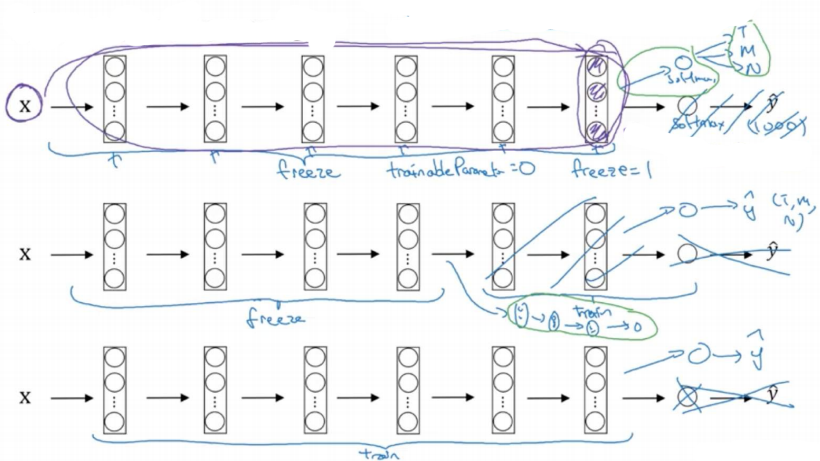 T
M
N
softmax
x
softmax
ŷ
(1000)
freeze
trainableParameter = 0
freeze = 1
x
ŷ (T, M, N)
ŷ
freeze
train
x
ŷ
ŷ
train